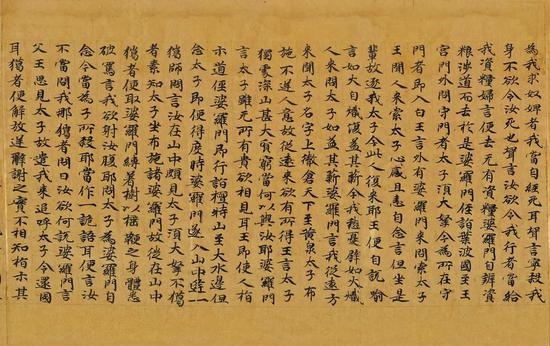 為我求奴婢者我當自經死耳聟言寧殺我
身不欲令汝死也聟言汝欲令我行者當給
我資糧婦言便去无有資糧婆羅門自辦資
粮涉道而去於是婆羅門徑詣葉波國至王
宮門外問守門者太子須大拏今為所在守
門者即入白王言外有婆羅門來索太子
王聞人來索太子心感且恚自念言但坐是
輩故逐我太子今此人復來耶王便自說喻
言如火自熾復益其薪今我愁憂譬如火熾
人來問太子如益其薪婆羅門言我從遠方
來聞太子名字上徹倉天下至黃泉太子布
施不逆人意故從遠來欲有所得王言太子
獨處深山甚大貧窮當何以與汝婆羅門
言太子雖无所有貴欲相見耳王即使人指
示道徑婆羅門即行詣檀特山至大水邊但
念太子即便得度時婆羅門遂入山中逢一
獦師問言汝在山中頗見太子須大拏不獦
者素知太子坐布施諸婆羅門故徙在山中
獦者便取婆羅門縛著樹以捶鞭之身體悉
破罵言我欲射汝腹問太子為婆羅門自
念今當為子所殺耶當作一詭語耳便言汝
不當問我耶獦者問曰汝欲何說婆羅門言
父王思見太子故遣我來追呼太子令還國
耳獦者便解放逆辭謝之實不相知指示其